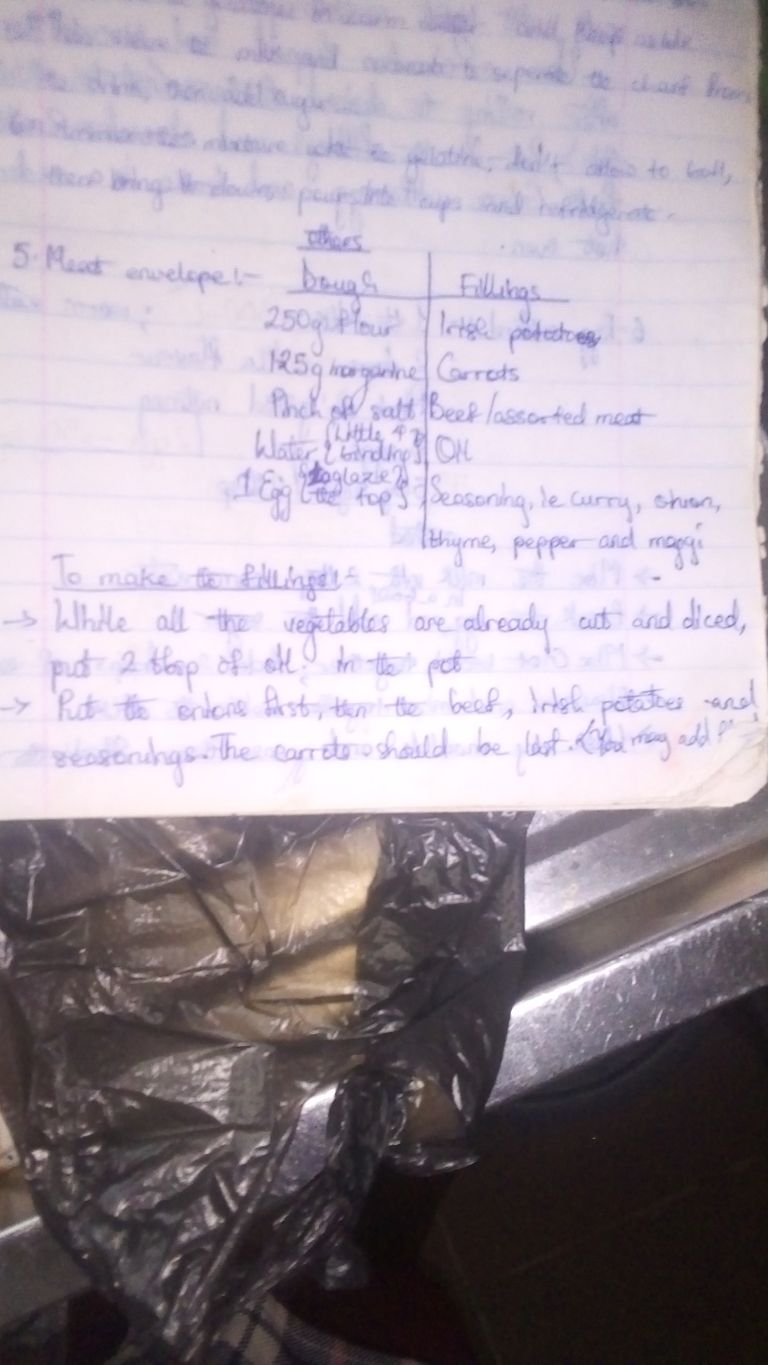 and keep aside
to separate the chaff from
the drink, then add sugar
mixture add the gelatine, don't allow to boil,
then bring it down, pour into cups and refrigerate.
Others
5. Meat envelope:-
Dough | Fillings
250g flour | Irish potatoes
125g margarine | Carrots
Pinch of salt | Beef/assorted meat
Water {little 4 binding} | Oil
1 Egg {to glaze the top} | Seasoning, ie curry, onion,
thyme, pepper and maggi
To make the fillings:-
→ While all the vegetables are already cut and diced,
put 2 tbsp of oil in the pot
→ Put the onions first, then the beef, Irish potatoes and
seasonings. The carrots should be last. (You may add